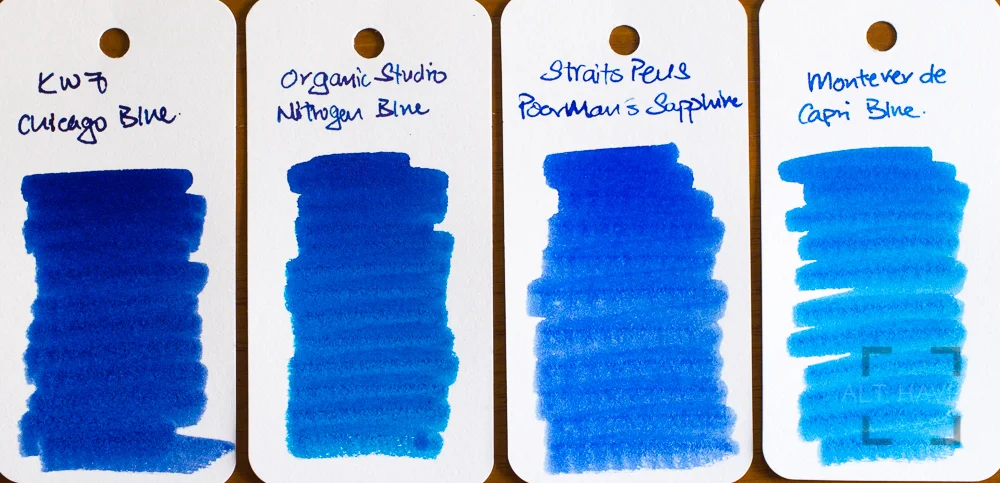 KWZ
Chicago Blue.
Organic Studio
Nitrogen Blue
Straits Pens
Poorman's Sapphire
Monteverde
Capri Blue.
ALT HAVEN